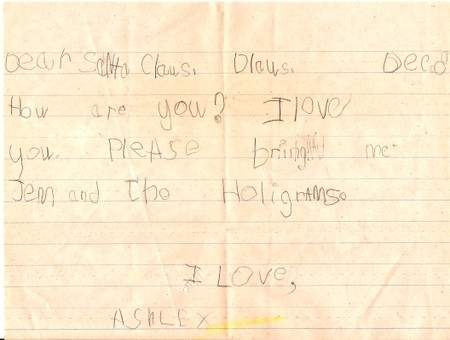 Dear Santa Claus.
How are you? I love
you. PleAse bring me
Jem and The Holigrams.
I LOVE,
ASHLEY